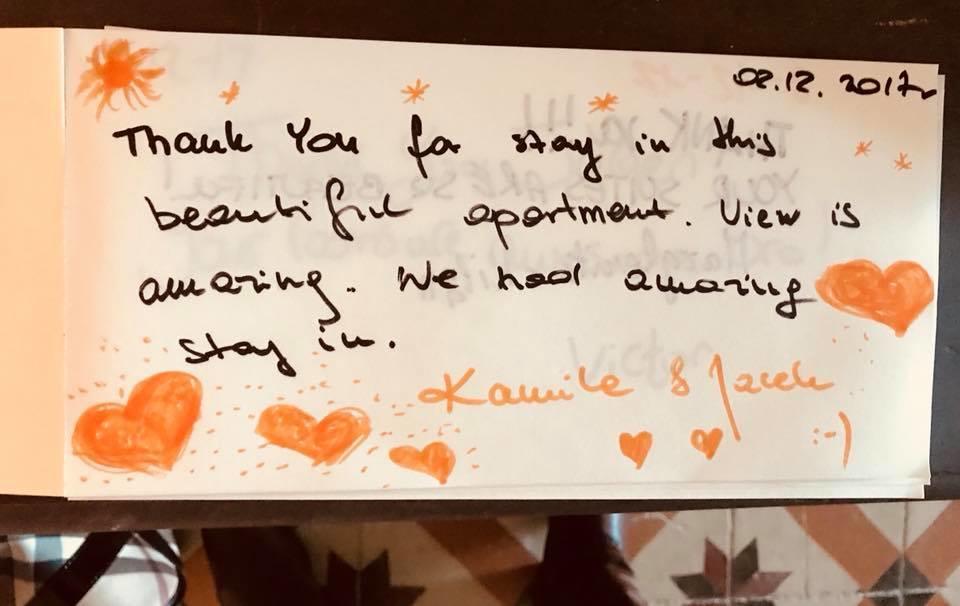 02.12.2017r
Thank You for stay in this
beautiful apartment. View is
amazing. We had amazing
stay in.
Kamila & Jacek
:-)